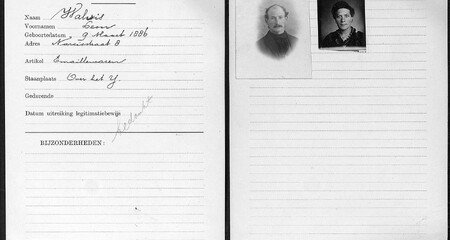 Naam Walvis
Voornamen Leen
Geboortedatum 9 Maart 1886
Adres Narcisstraat 8
Artikel Emaillewaren
Staanplaats Over het Y.
Gedurende
Datum uitreiking legitimatiebewijs
BIJZONDERHEDEN: